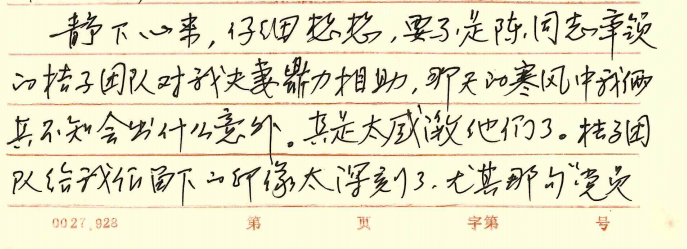 静下心来，仔细想想，要不是陈同志率领
的桔子团队对我夫妻鼎力相助，那天的寒风中我俩
真不知会出什么意外。真是太感激他们了。桔子团
队给我们留下的印像太深刻了，尤其那句“党员
0027.928 第 页 字第 号